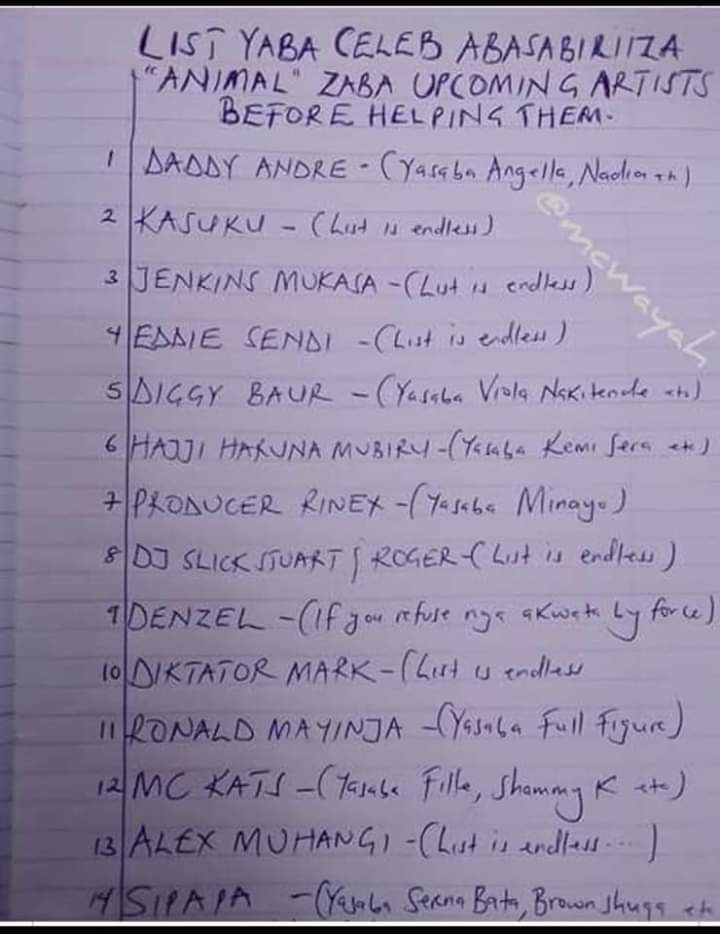 LIST YABA CELEB ABASABIRIIZA
"ANIMAL" ZABA UPCOMING ARTISTS
BEFORE HELPING THEM.
1 DADDY ANDRE - (Yasaba Angella, Nadia etc)
2 KASUKU - (List is endless)
3 JENKINS MUKASA - (List is endless)
4 EDDIE SENDI - (List is endless)
5 DIGGY BAUR - (Yasaba Viola Nakitende etc)
6 HAJJI HARUNA MUBIRU - (Yasaba Kemi Sera etc)
7 PRODUCER RINEX - (Yasaba Minayo)
8 DJ SLICK STUART & ROGER - (List is endless)
9 DENZEL - (If you refuse nga akwata by force)
10 DIKTATOR MARK - (List is endless
11 RONALD MAYINJA - (Yasaba Full Figure)
12 MC KATS - (Yasaba Fille, Shammy K etc)
13 ALEX MUHANGI - (List is endless...)
14 SIPAPA - (Yasaba Serena Bata, Brown Shuga etc
@mcwayah